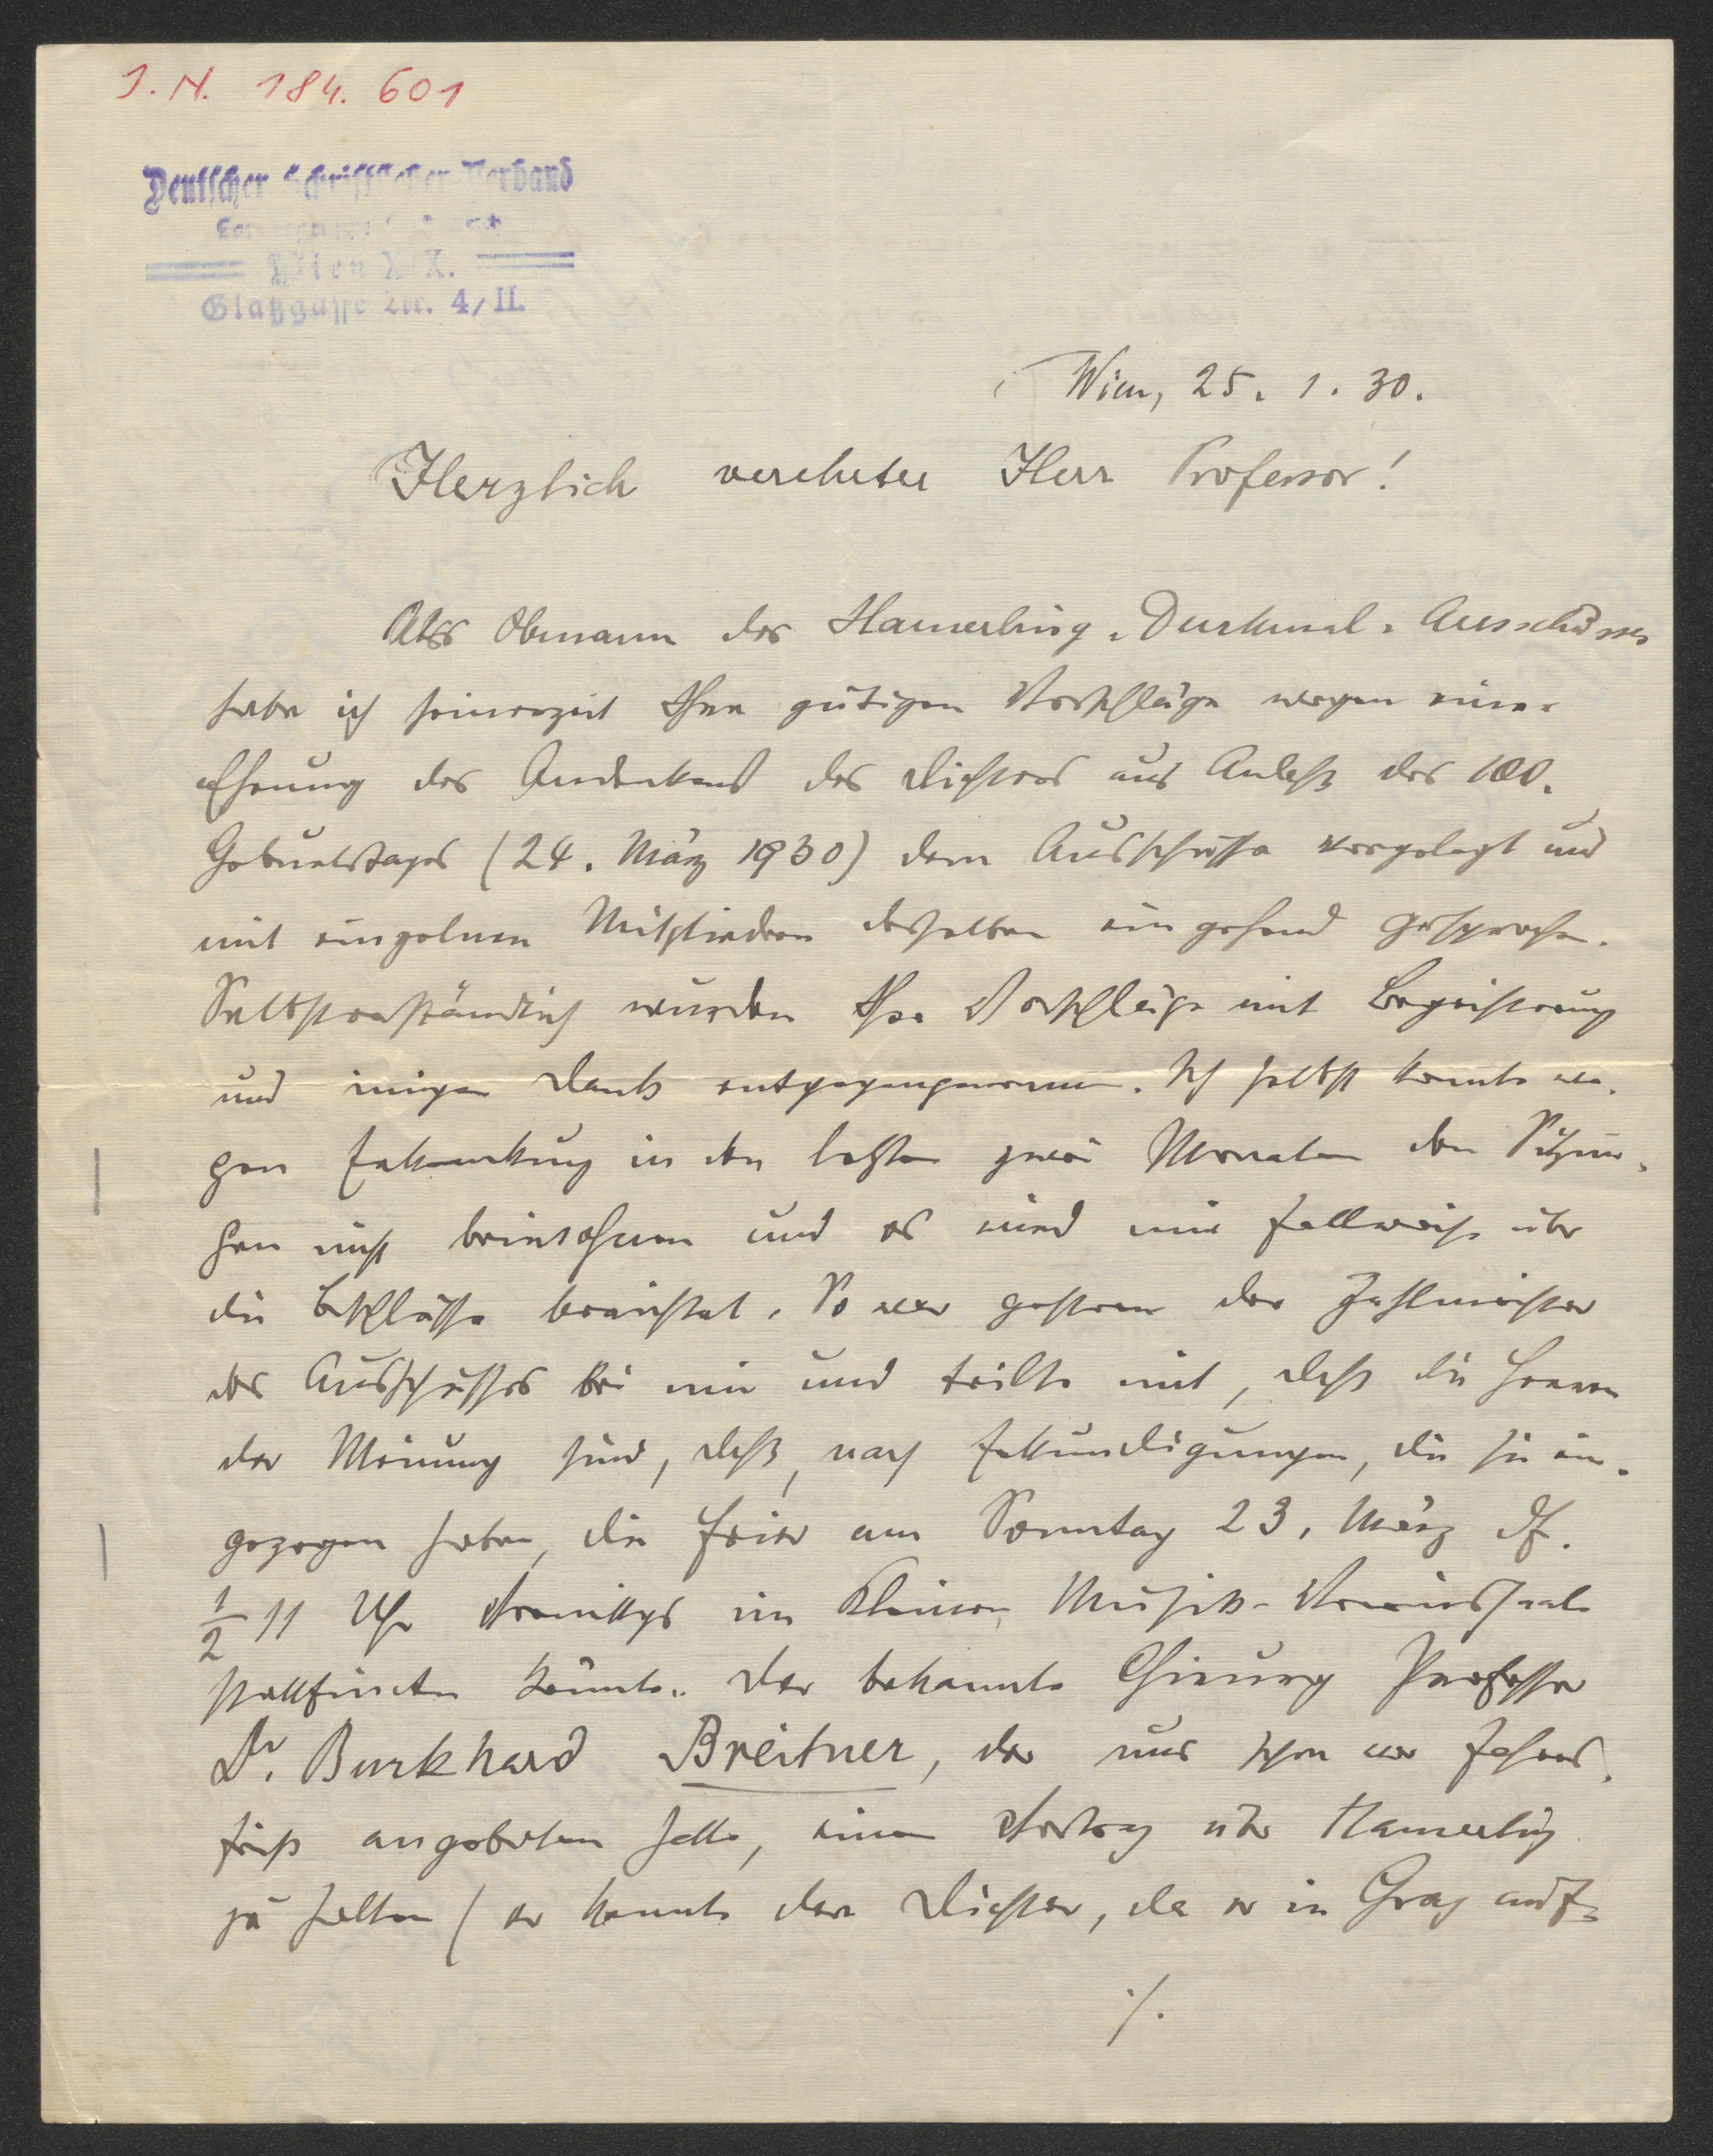 J. N. 184. 601
Deutscher Schriftsteller-Verband
Wien XIX.
Glatzgasse Nr. 4/II.
Wien, 25. 1. 30.
Herzlich verehrter Herr Professor!
Als Obmann des Hamerling-Denkmal-Ausschusses
habe ich seinerzeit Ihre gütigen Vorschläge wegen einer
Ehrung des Andenkens des Dichters aus Anlaß des 100.
Geburtstages (24. März 1930) dem Ausschusse vorgelegt und
mit einzelnen Mitgliedern desselben eingehend gesprochen.
Selbstverständlich wurden Ihre Vorschläge mit Begeisterung
und innigem Dank entgegengenommen. Ich selbst konnte we-
gen Erkrankung in den letzten zwei Monaten den Sitzun-
gen nicht beiwohnen und es wird mir fallweise über
die Beschlüsse berichtet. So war gestern der Zahlmeister
des Ausschusses bei mir und teilte mit, daß die Herren
der Meinung sind, daß, nach Erkundigungen, die sie ein-
gezogen haben, die Feier am Sonntag 23. März ds.
1/2 11 Uhr vormittgs im kleinen Musik-Vereinssaale
stattfinden könnte. Der bekannte Chirurg Professor
Dr. Burkhard Breitner, der uns schon vor Jahres-
frist angeboten hatte, einen Vortrag über Hamerling
zu halten (er kannte den Dichter, da er in Graz auf-
./.